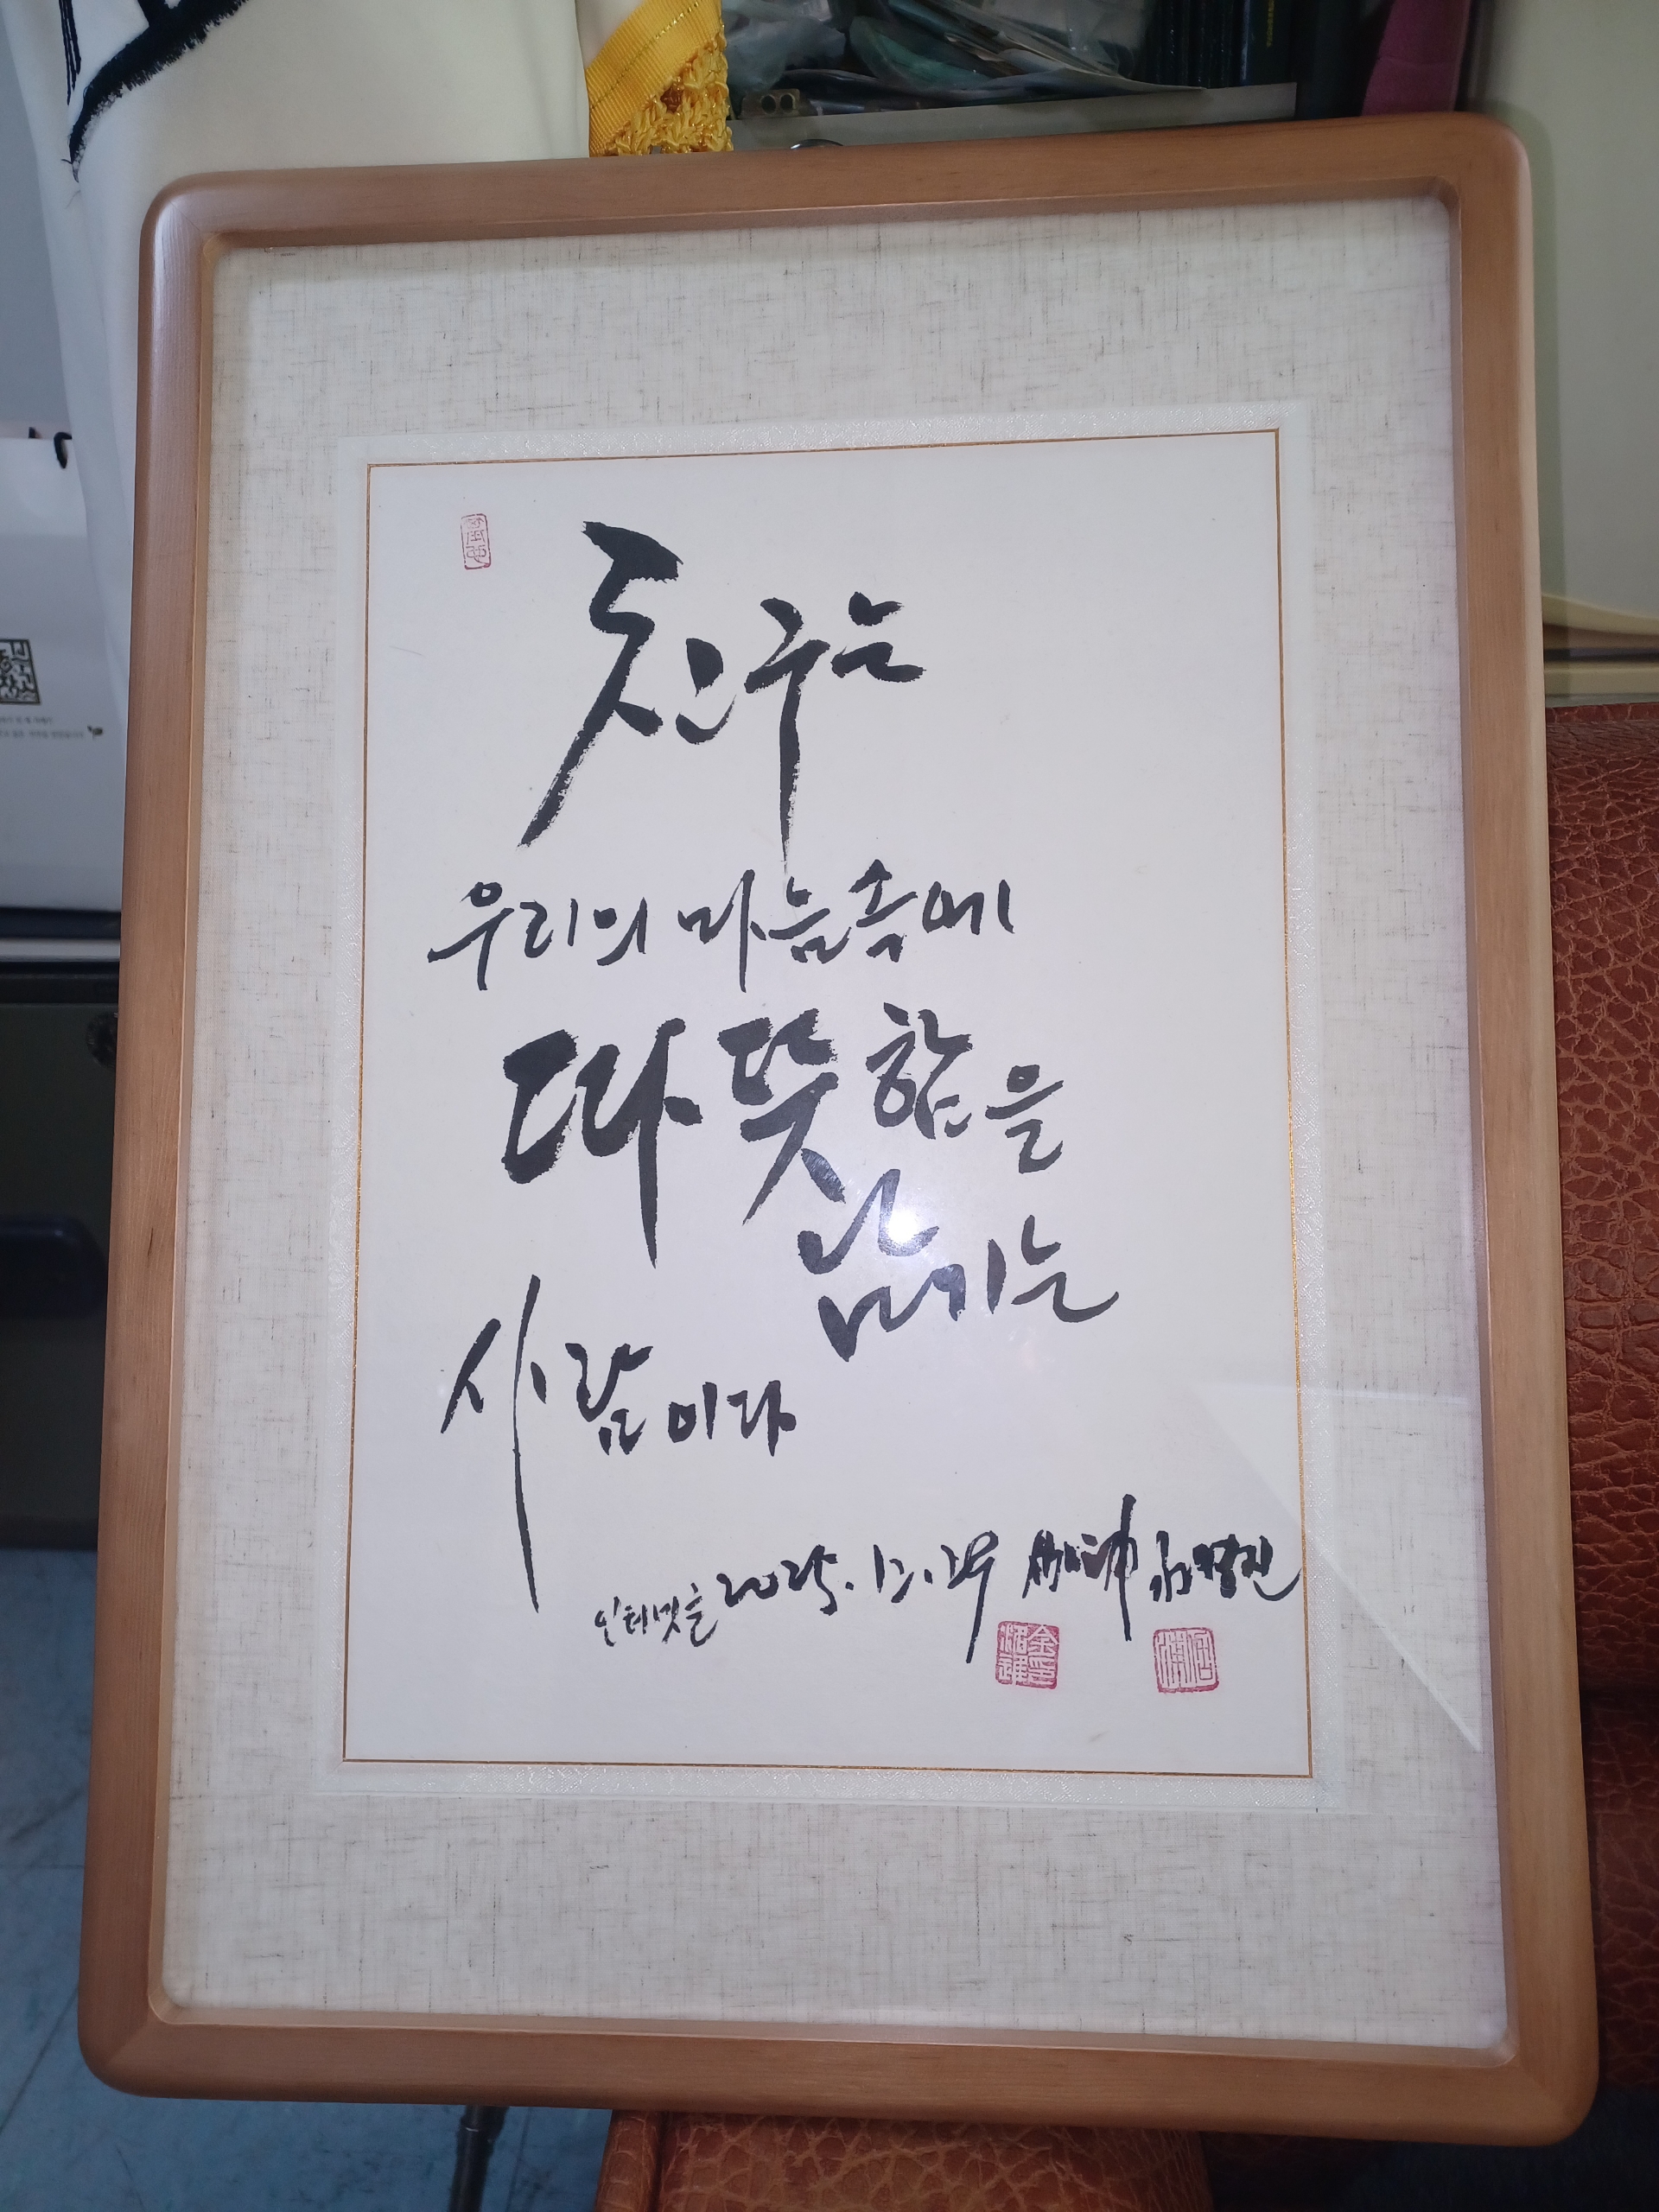 친구는
우리의 마음속에
따뜻함을
남기는
사람이다
2025. 12. 29